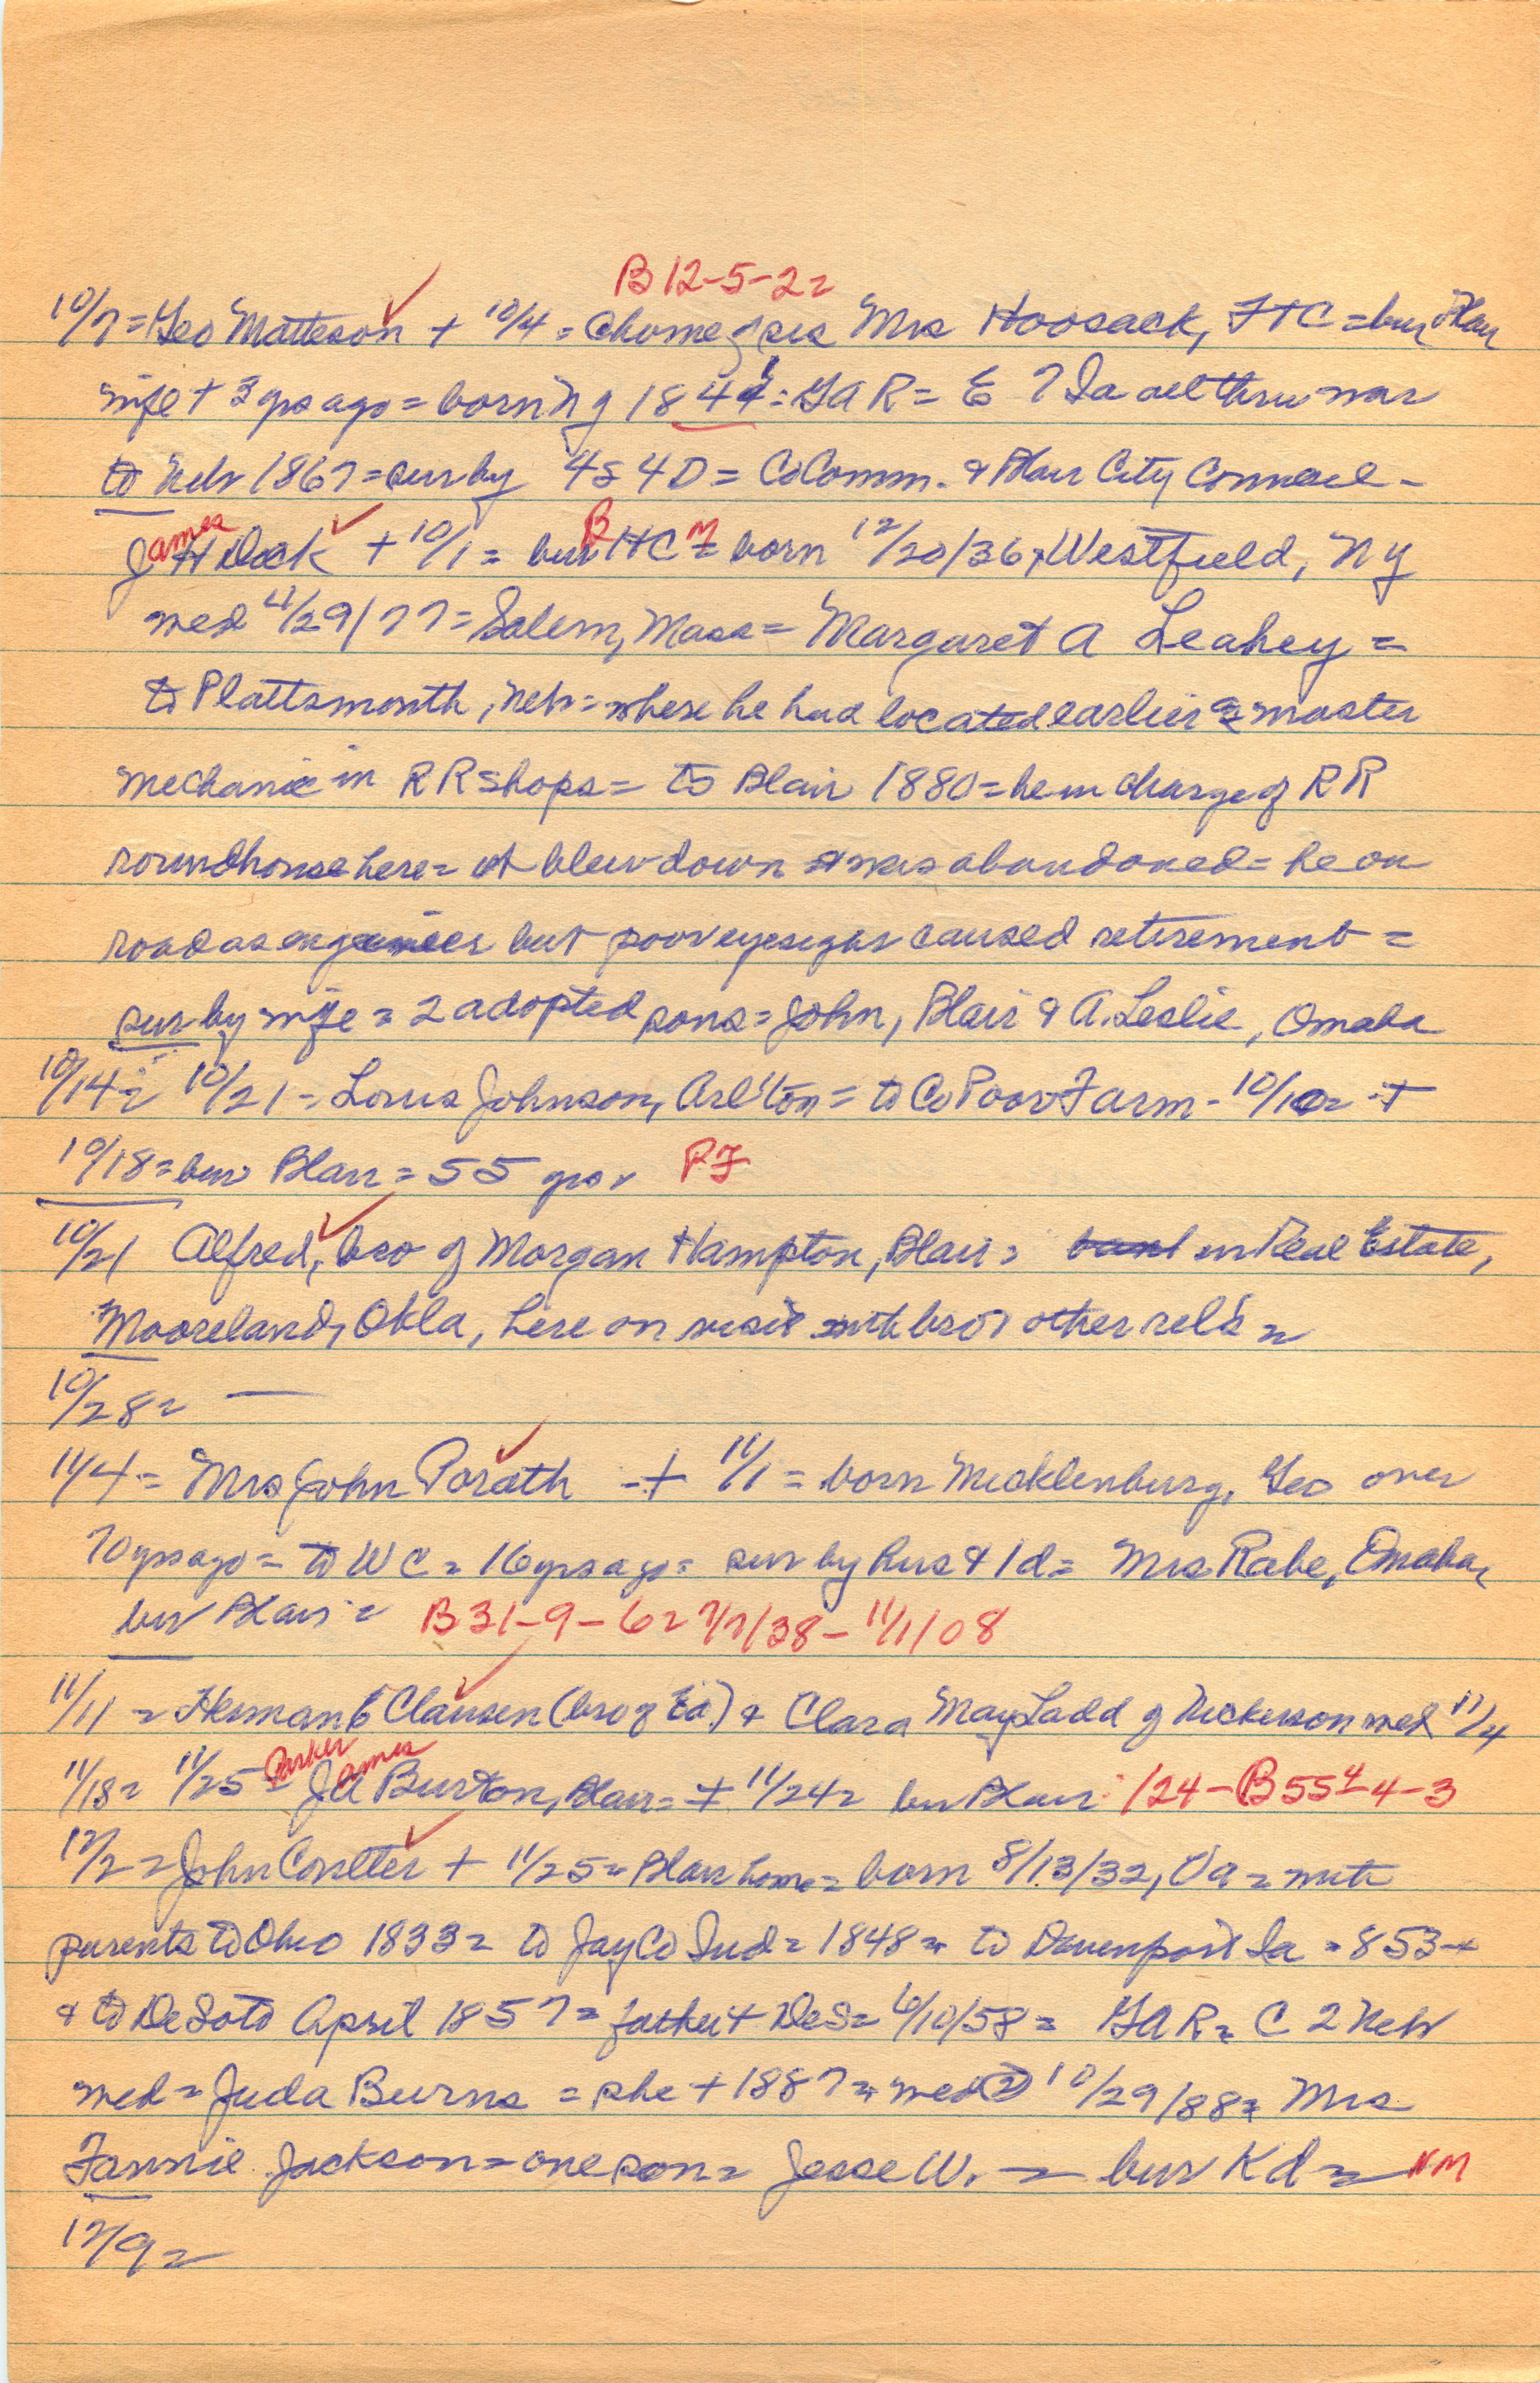 B 12-5-2=
10/7 = Geo Matteson + 10/4 = @ home of sis Mrs Hoosack, FTC = bur Blair
wife + 3 yrs ago = born NY 1844 = GAR = E 7 Ia all thru war
to Neb 1867 = sur by 4S 4D = CoComm. & Blair City Council -
James
J H Dock + 10/1 = bur B HC M = born 12/20/36, Westfield, NY
med 11/29/77 = Salem, Mass = Margaret A Leahey =
to Plattsmouth, Neb = where he had located earlier as master
mechanic in RR shops = to Blair 1880 = he in charge of RR
roundhouse here = it blew down & was abandoned = he on
road as engineer but poor eyesight caused retirement =
sur by wife = 2 adopted sons = John, Blair & A. Leslie, Omaha
10/14 = 10/21 - Louis Johnson, Arl'ton = to Co Poor Farm - 10/10 = +
10/18 = bur Blair = 55 yrs. PF
10/21 Alfred, bro of Morgan Hampton, Blair = in Real Estate,
Mooreland, Okla, here on visit with bro & other rel's =
10/28 = —
11/4 = Mrs John Porath + 11/1 = born Mecklenburg, Geo over
70 yrs ago = to WC = 16 yrs ago = sur by hus & 1d = Mrs Rabe, Omaha,
bur Blair = B 31-9-6 = 7/7/38 - 11/1/08
11/11 = Herman E Clausen (bro of Ed) & Clara May Ladd of Nickerson med 11/4
Parker James
11/18 = 11/25 = J A Burton, Blair = + 11/24 = bur Blair 124-B 55-4-3
12/2 = John Coulter + 11/25 = Blair home = born 8/13/32, Va = with
parents to Ohio 1833 = to Jay Co Ind = 1848 = to Davenport Ia = 853 +
& to DeSoto April 1857 = father + DeS = 6/10/58 = GAR = C 2 Neb
med = Juda Burns = she + 1887 = med (2) 10/29/88 = Mrs
Fannie Jackson = one son = Jesse W. = bur Kd = NM
12/9 =